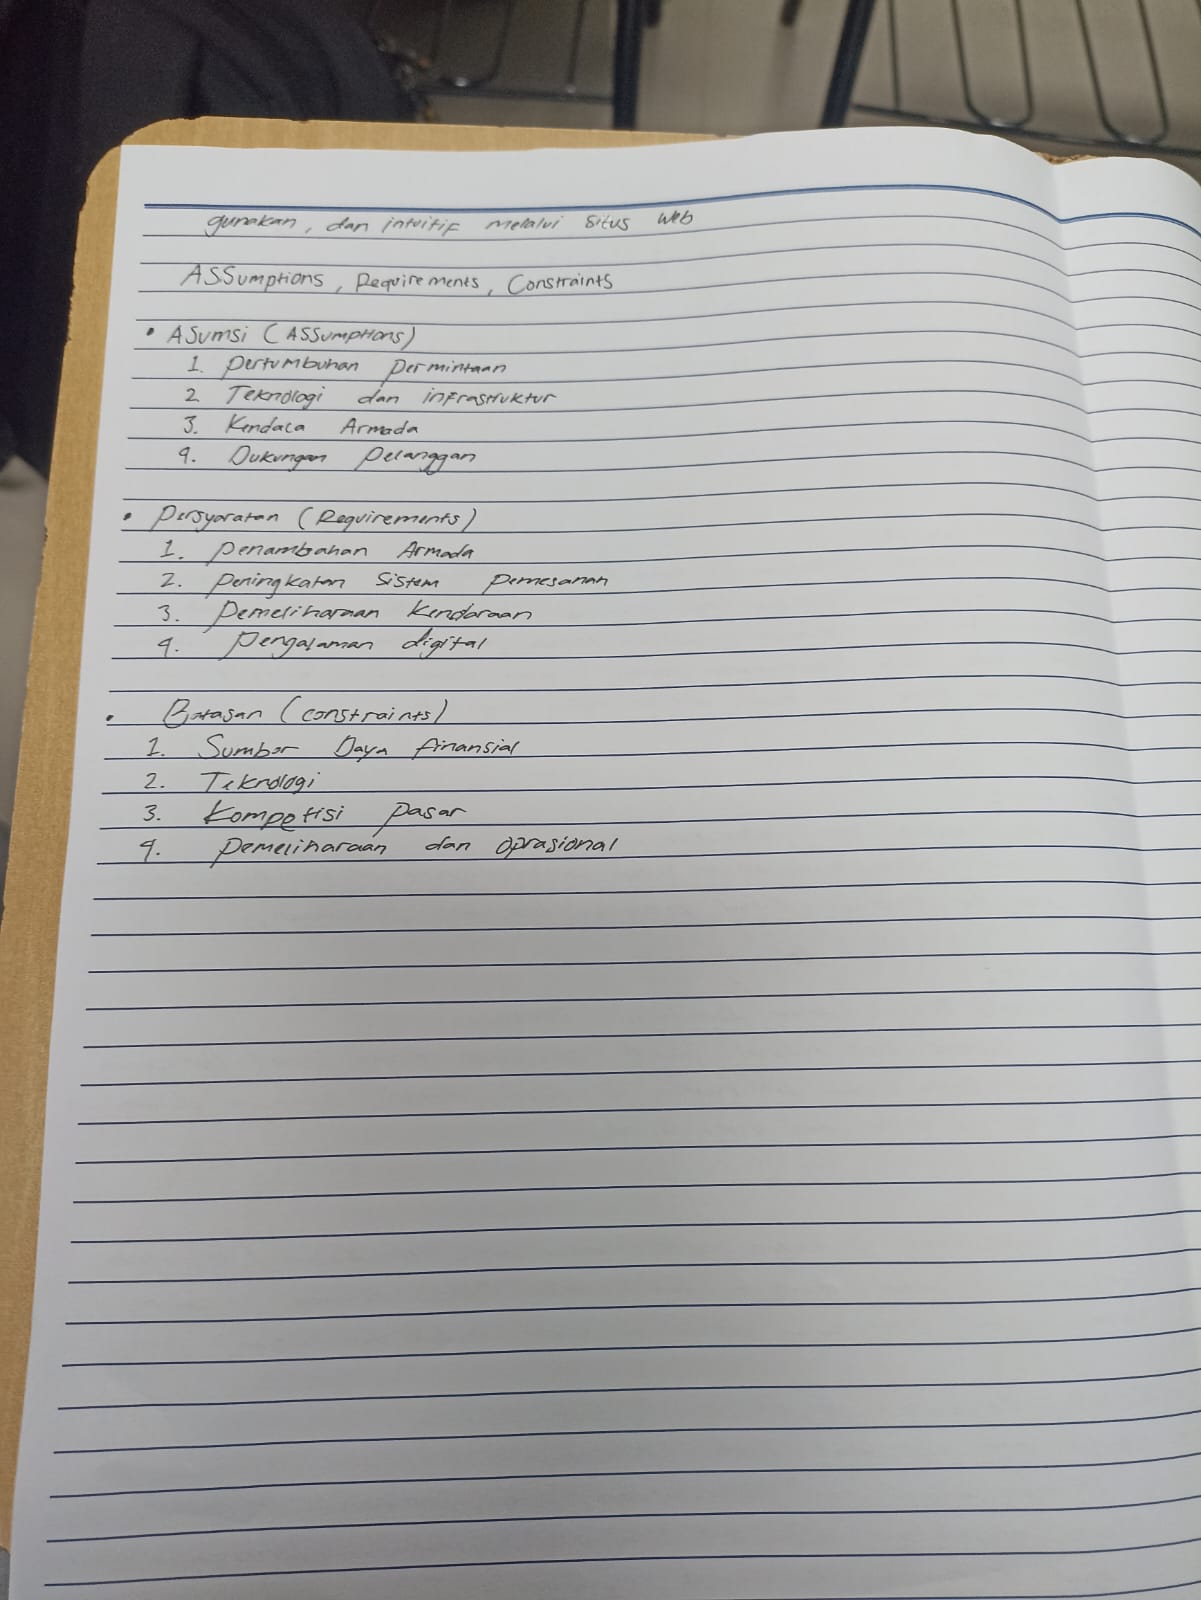 gunakan, dan intuitif melalui situs web
Assumptions, Requirements, Constraints
• Asumsi (Assumptions)
1. Pertumbuhan permintaan
2 Teknologi dan infrastruktur
3. Armada
4. Dukungan Pelanggan
• Persyaratan (Requirements)
1. Penambahan Armada
2. Peningkatan Sistem pemesanan
3. Pemeliharaan Kendaraan
4. Pengalaman digital
• Batasan (constraints)
1. Sumber Daya finansial
2. Teknologi
3. Kompetisi pasar
4. Pemeliharaan dan oprasional